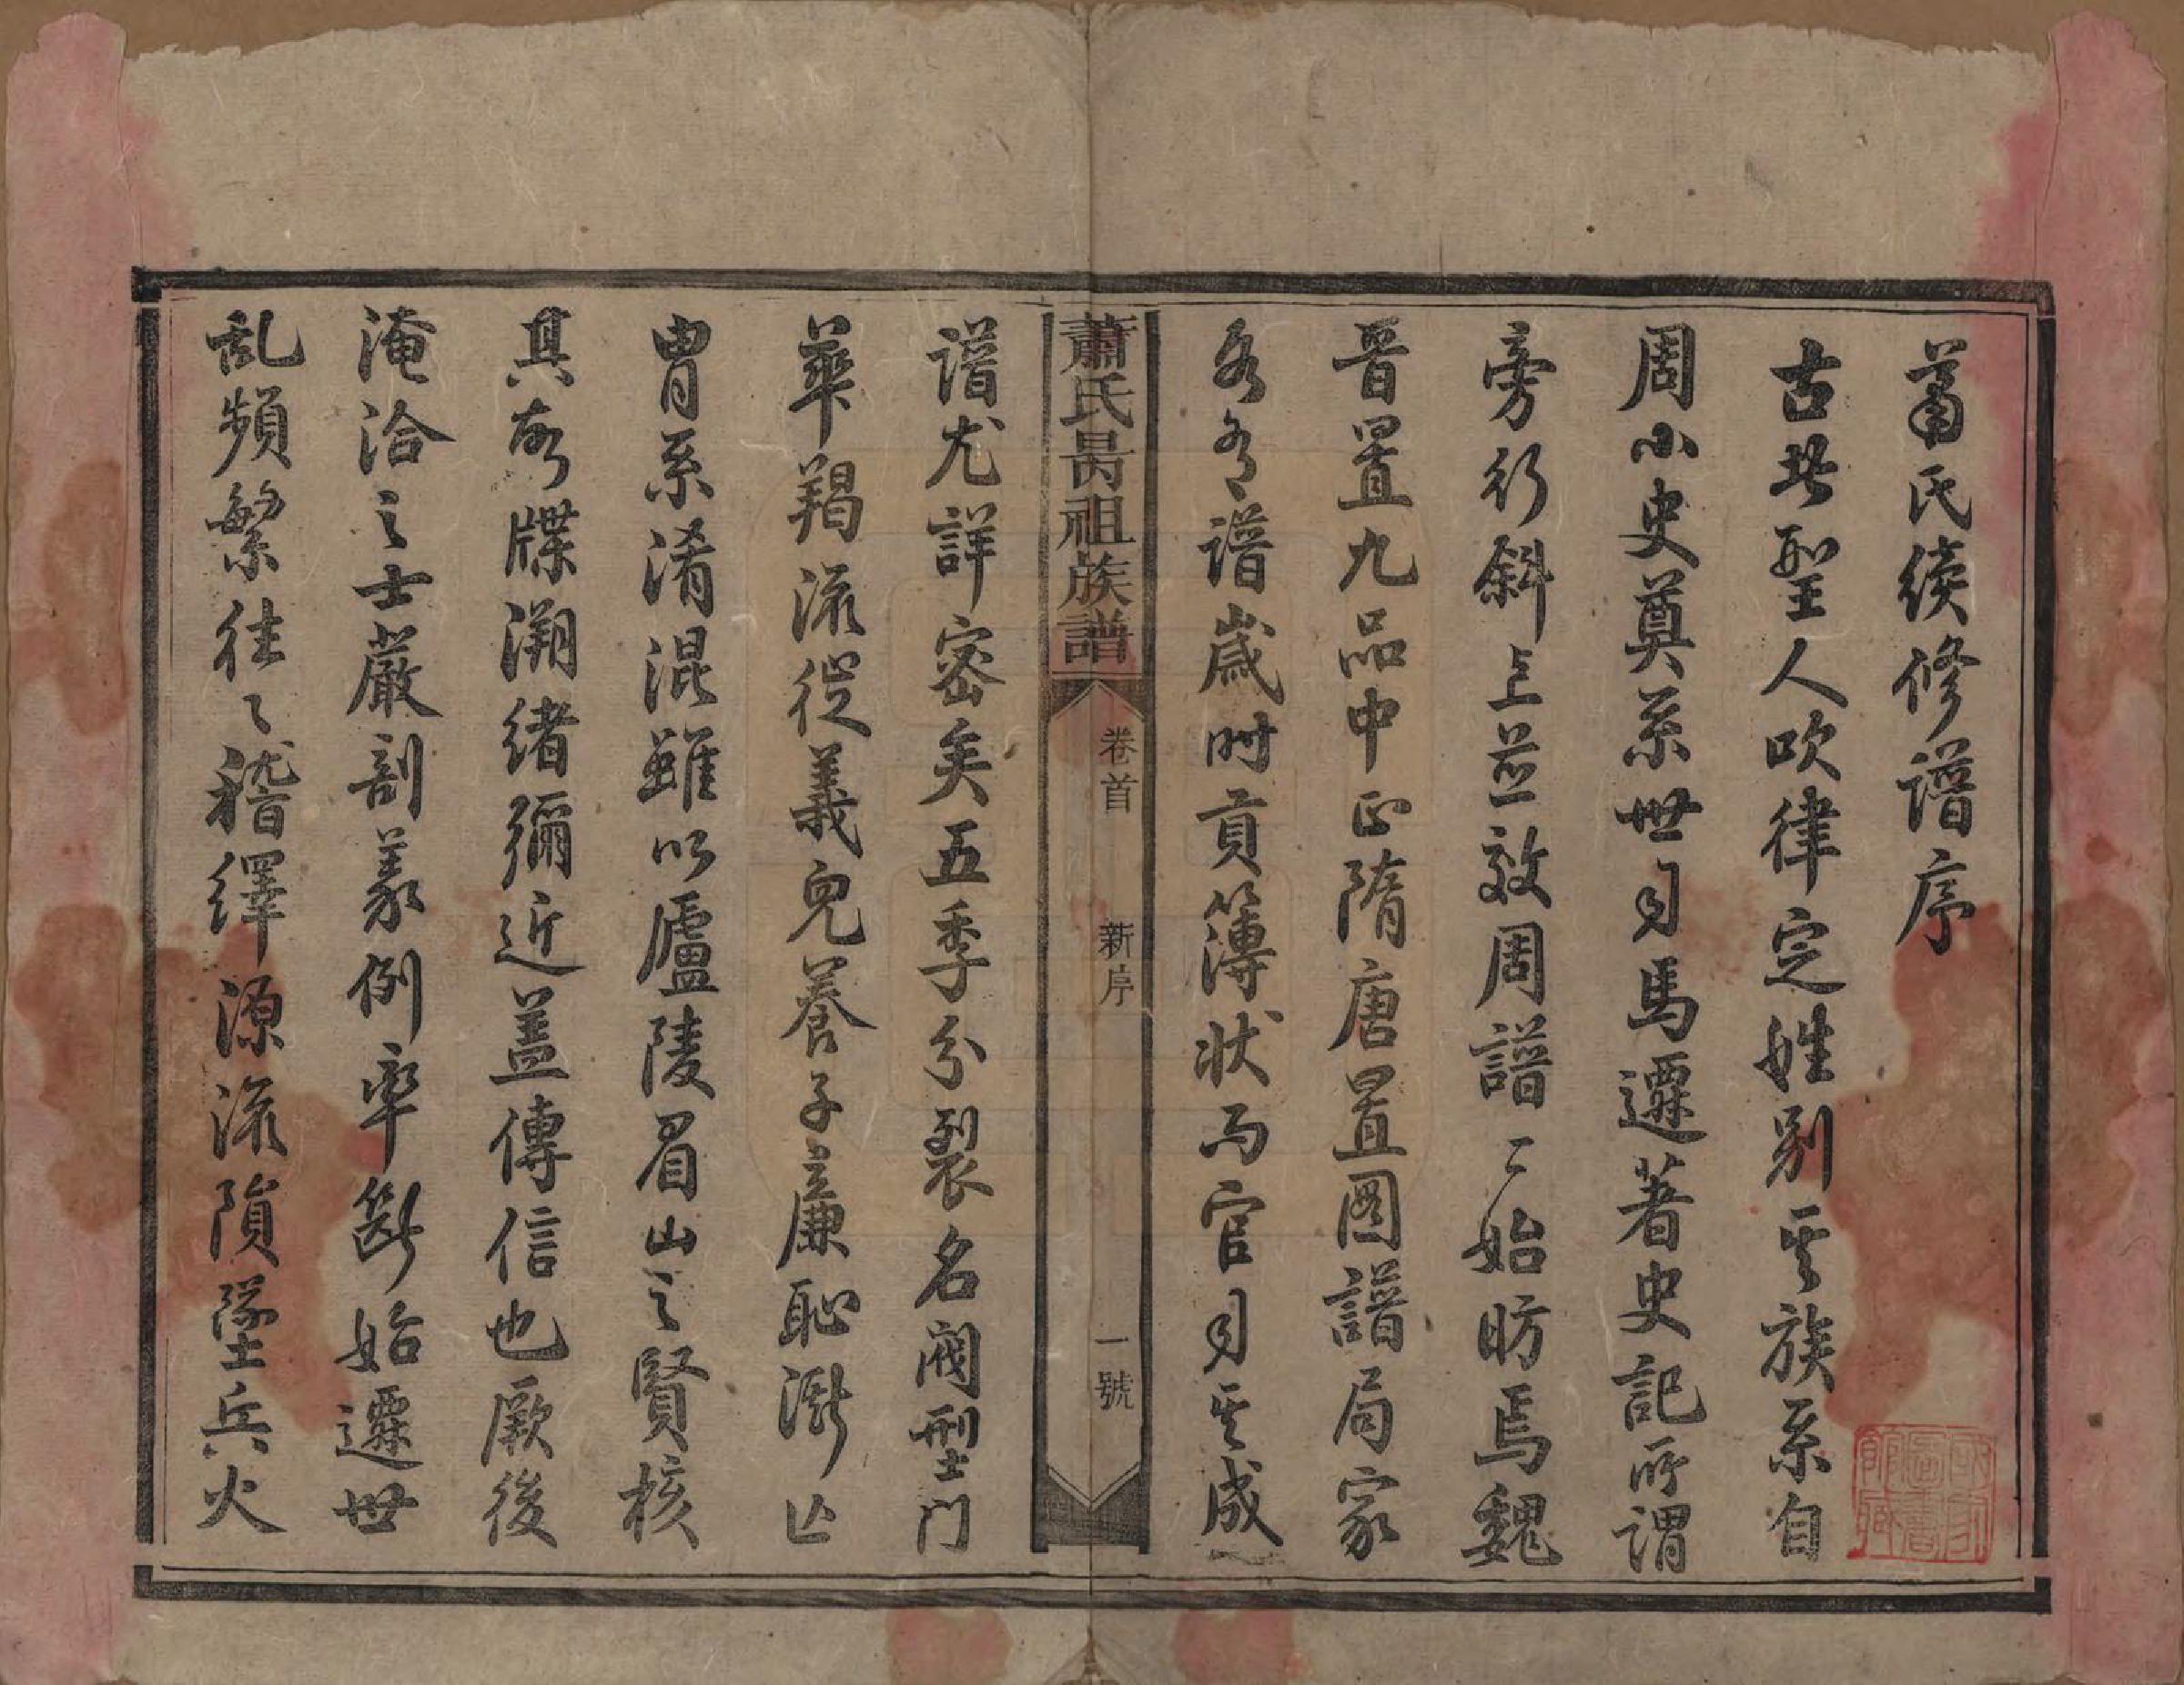 蕭氏續修譜序
古者聖人吹律定姓別其族系自
周小史奠系世司馬遷著史記所謂
旁行斜上並效周譜譜始昉焉魏
晉置九品中正隋唐置圖譜局家
各有譜歲時貢簿狀而官司其成
蕭氏昺祖族譜
卷首
新序
一號
譜尤詳密矣五季分裂名閥型門
華羯流從義兒養子廉恥澌亡
胄系淆混雖以廬陵眉山之賢核
其所牒溯緒彌近蓋傳信也厥後
淹洽之士嚴剖義例率斷始遷世
亂頻繁往々稽繹源流隕墜兵火